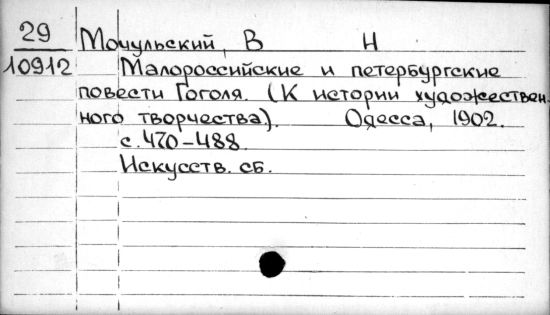 29 Мочульский, В Н
10912 Малороссийские и петербургские
повести Гоголя. (К истории художествен.
ного творчества). Одесса, 1902.
с. 470-488
Искусств. сб.